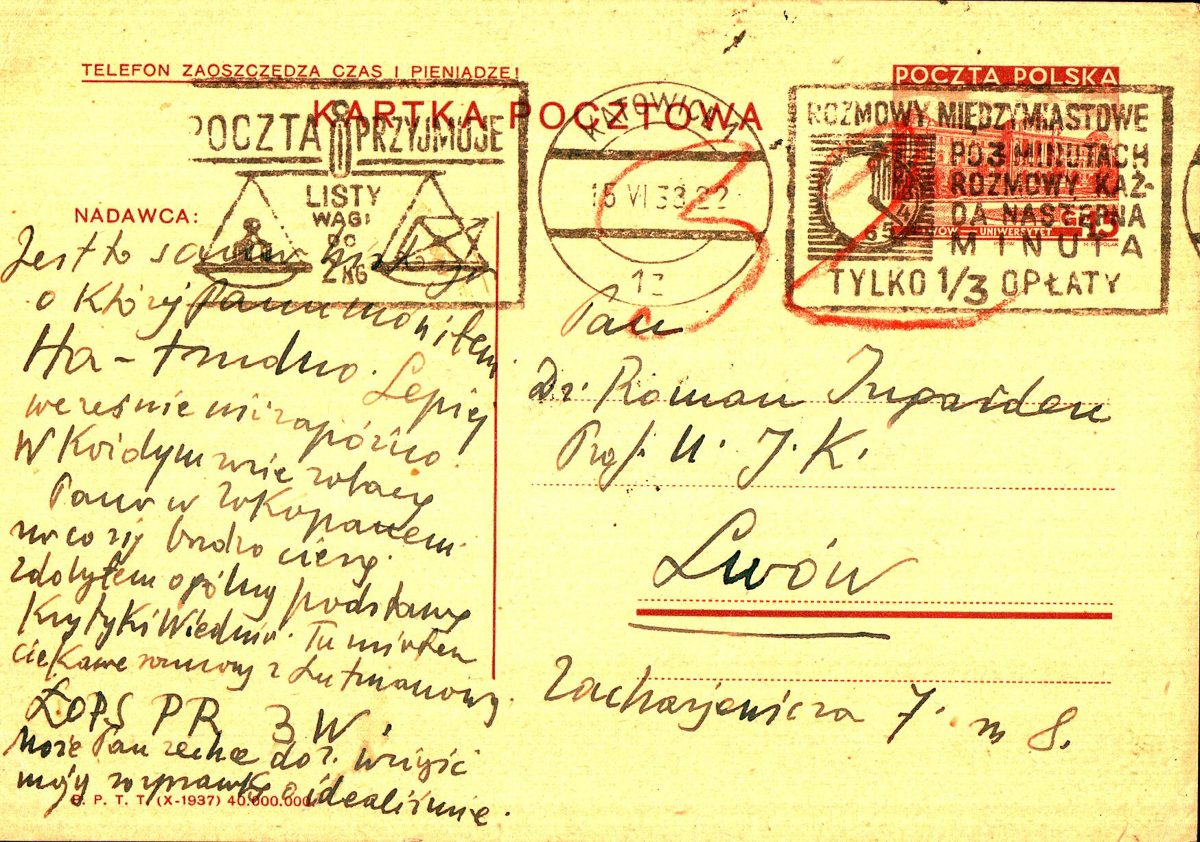 TELEFON ZAOSZCZĘDZA CZAS I PIENIĄDZE!
POCZTA POLSKA
KARTKA POCZTOWA
POCZTA PRZYJMUJE
LISTY
WAGI
DO
2 KG
KATOWICE 1
15 VI 38 22
1z
ROZMOWY MIĘDZYMIASTOWE
PO 3 MINUTACH
ROZMOWY KAŻ-
DA NASTĘPNA
MINUTA
TYLKO 1/3 OPŁATY
UNIWERSYTET
15
NADAWCA:
Jest to sama
o której Panu mówiłem
Ha – trudno. Lepiej
wcześnie niż późno.
W każdym razie zobaczę
Pana w Zakopanem
na co się bardzo cieszę.
Zdobyłem ogólną podstawę
Krytyki Wiednia. Tu miałem
ciekawe rozmowy z Lutmanową.
PR 3 W.
Może Pan zechce
moją rozprawkę o idealiźmie.
Pan
Dr. Roman Ingarden
Prof. U. J. K.
Lwów
Zacharjewicza 7. m 8.
P. T. T. (X-1937) 40.000.000